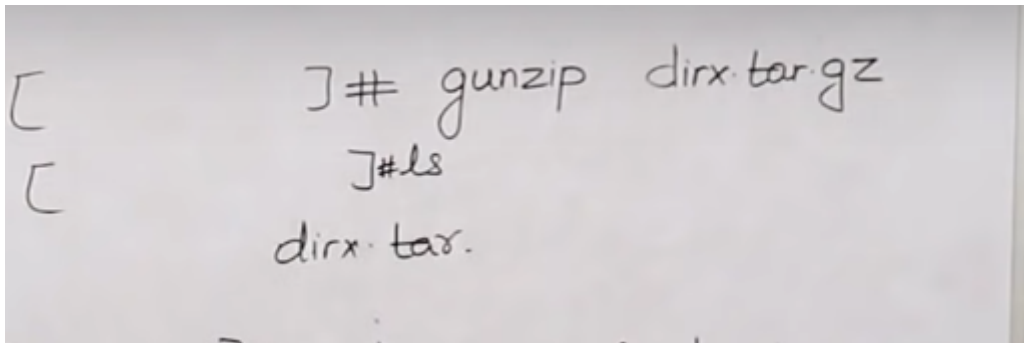 [ ]# gunzip dirx.tar.gz
[ ]#ls
dirx.tar.